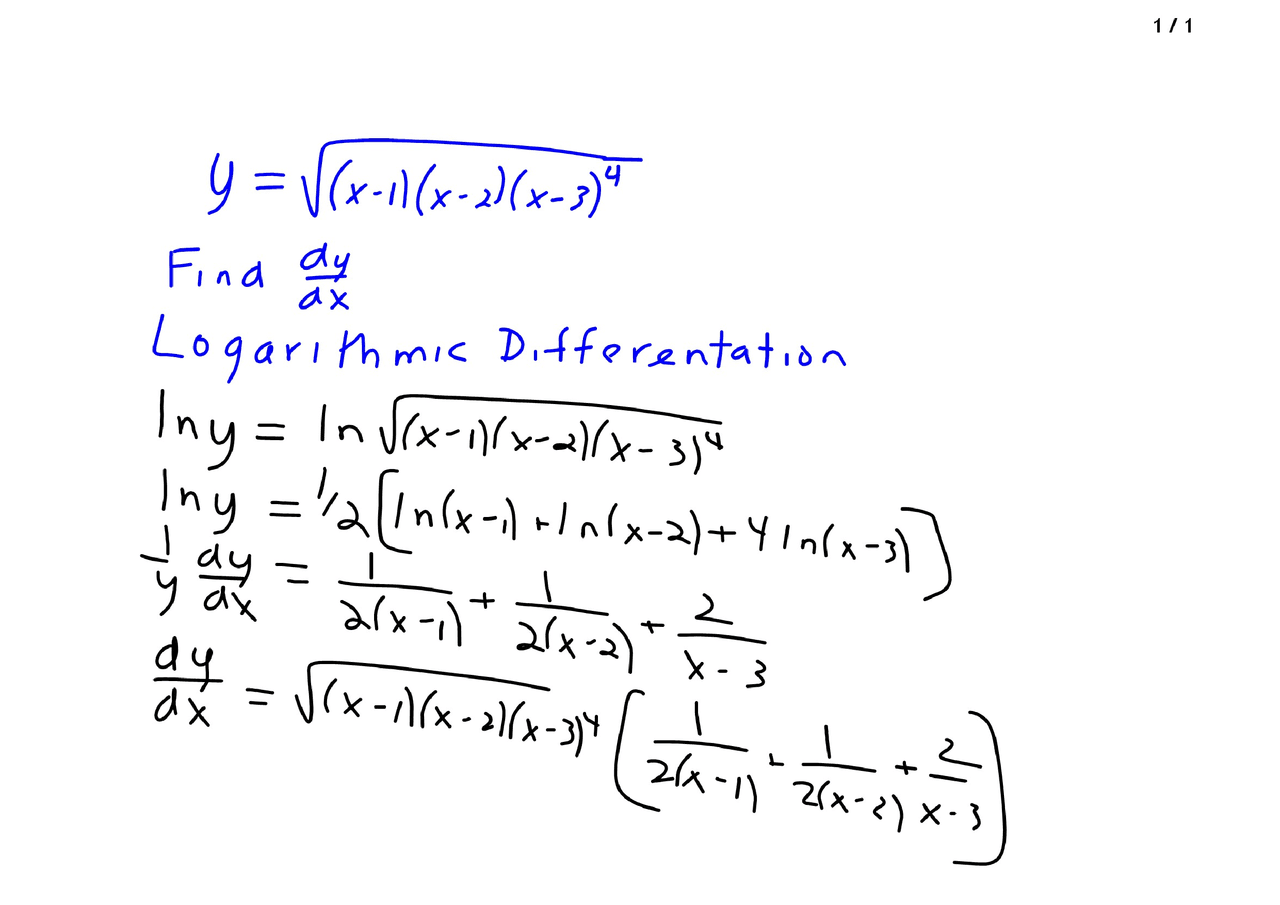 1 / 1
y = √((x-1)(x-2)(x-3)⁴)
Find dy/dx
Logarithmic Differentation
ln y = ln √((x-1)(x-2)(x-3)⁴)
ln y = 1/2 [ln(x-1) + ln(x-2) + 4 ln(x-3)]
1/y dy/dx = 1/(2(x-1)) + 1/(2(x-2)) + 2/(x-3)
dy/dx = √((x-1)(x-2)(x-3)⁴) [1/(2(x-1)) + 1/(2(x-2)) + 2/(x-3)]